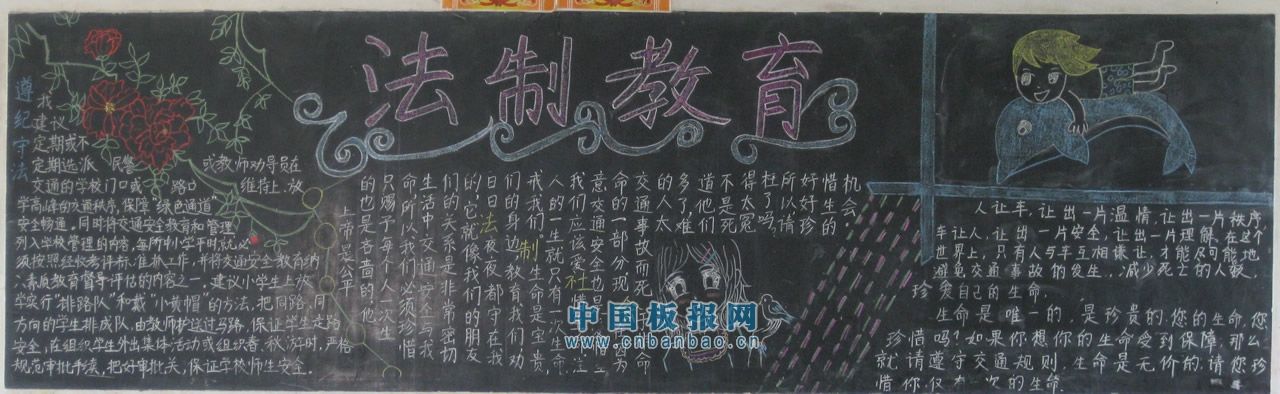 法制教育
遵纪守法
我
建议
定期或不
定期选派 民警 或教师劝导员在
交通的学校门口或 路口 维持上、放
学高峰的交通秩序，保障"绿色通道"
安全畅通。同时将交通安全教育和管理
列入学校管理的内容，每所中小学平时就必
须按照经
工作，并将交通安全教育纳
入素质教育督导评估的内容之一。建议小学生上放
学实行"排路队"和戴"小黄帽"的方法，把同路、同
方向的学生排成队，由教师护送过马路，保证学生走路
安全，在组织学生外出集体活动或组织春、秋游时，严格
规范审批手续，把好审批关，保证学校师生安全。
上帝是公平
的也是吝啬的，他
只赐予每个人一次生
命，所以我们必须珍惜
生活中，交通安全与我
们的关系是非常密切
的，它就像我们的朋友
日日夜夜都守在我
们的身边，教育我们劝
戒我们。生命是宝贵，
人的一生就只有一次生命，
我们应该爱
意交通安全也是
命的一部分，现
交通事故而死
的人太
多了，难
道他们
不是死
得太冤
枉了吗，
所以请
好好珍
惜生的
机会。
人让车，让出一片温情，让出一片秩序
车让人，让出一片安全，让出一片理解，在这个
世界上，只有人与车互相谦让，才能尽可能地
避免交通事故的发生，减少死亡的人数，
珍爱自己的生命。
生命是唯一的，是珍贵的，您的生命，您
珍惜吗？如果你想你的生命受到保障，那么
就请遵守交通规则，生命是无价的，请您珍
惜你仅有一次的生命
中国板报网
www.cnbanbao.cn